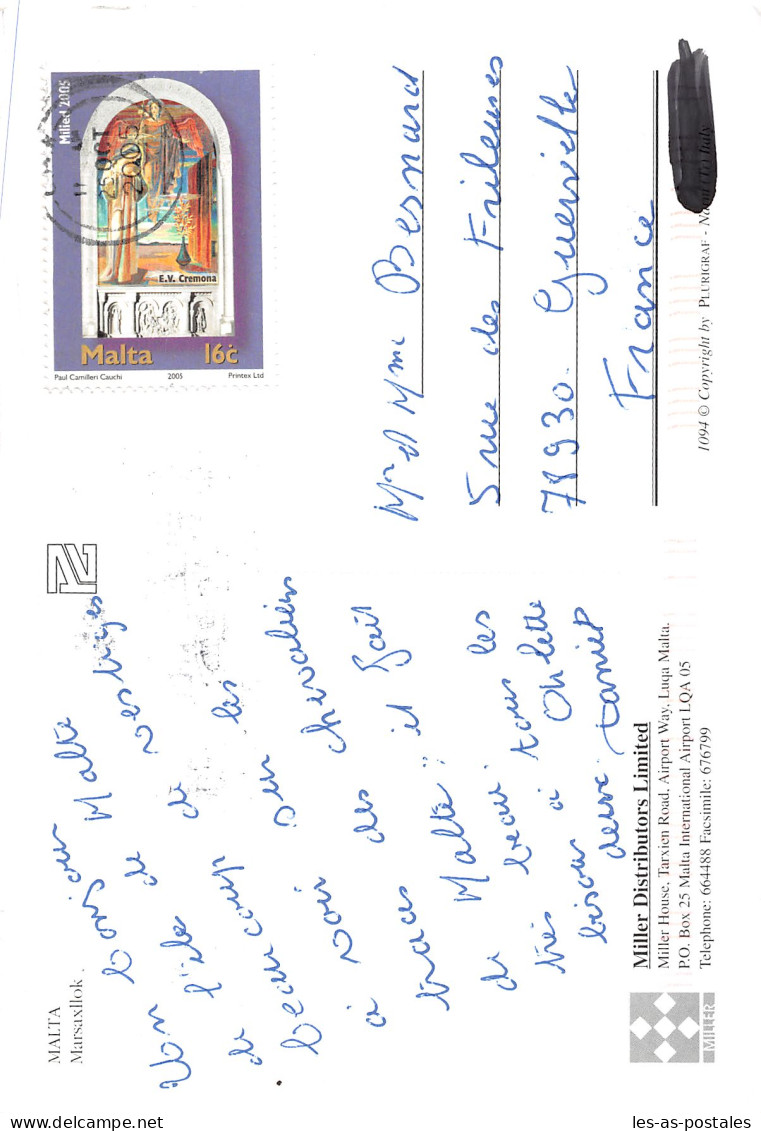 MALTA
Marsaxllok.
Un bonjour
de l'ile de Malte
beaucoup de vestiges
à voir sur les
traces des chevaliers
de Malte, il fait
très beau.
bisous à tous les
deux.
Milied 2005
11 OCT 2005
E.V. Cremona
Malta 16c
Paul Camilleri Cauchi 2005 Printex Ltd
Mr et Mme Besnard
5 rue des Frileuses
78930. Guerville
France
Miller Distributors Limited
Miller House, Tarxien Road, Airport Way, Luqa Malta.
P.O. Box 25 Malta International Airport LQA 05
Telephone: 664488 Facsimile: 676799
MILLER
1094 © Copyright by PLURIGRAF - Italy
les-as-postales.com